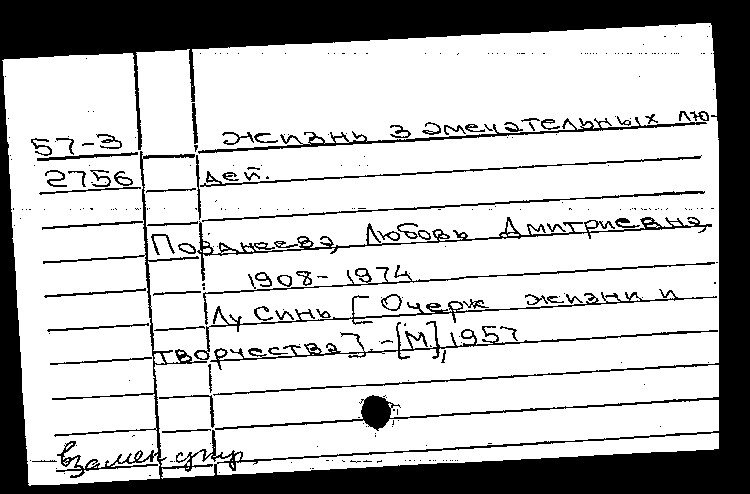 57-3 Жизнь замечательных лю-
2756 дей.
Позднеева, Любовь Дмитриевна,
1908-1974.
Лу Синь [Очерк жизни и
творчества]. -[М], 1957.
взамен утр.